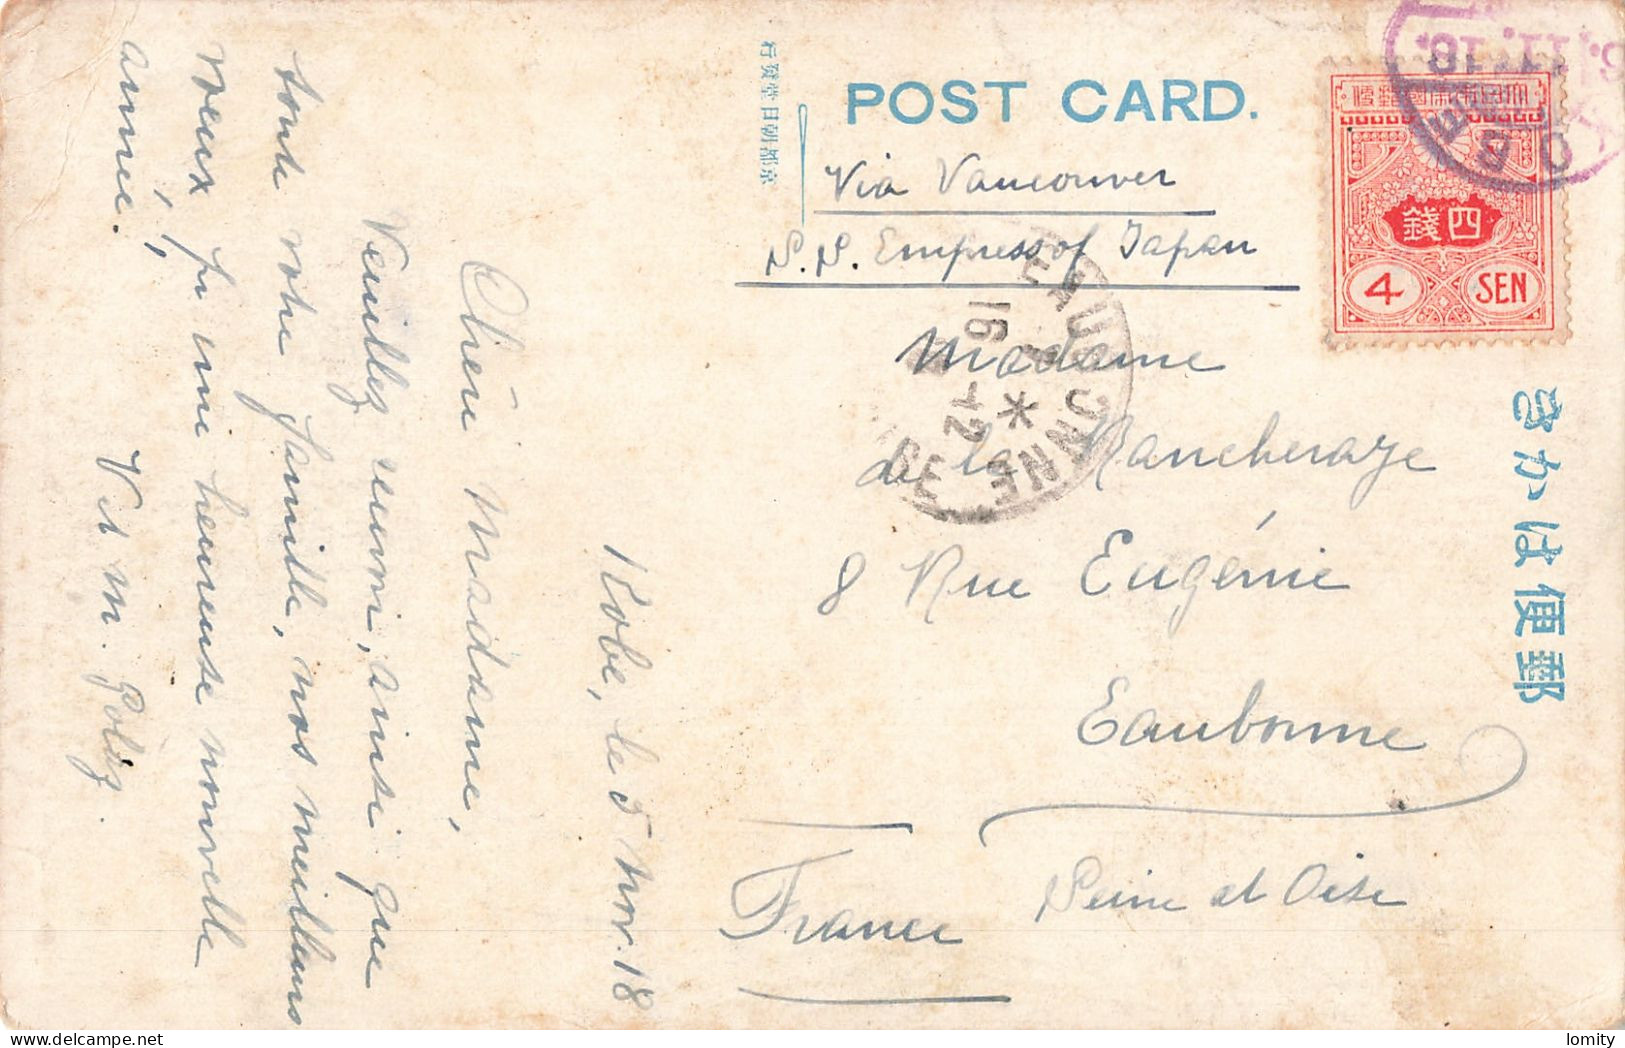 POST CARD.
Via Vancouver
S.S. Empress of Japan
Madame
de la Rancheraye
8 Rue Eugénie
Eaubonne
Seine et Oise
France
Kobe, le 5 nov. 18
Chère Madame,
Veuillez réunir, ainsi que
toute votre famille, nos meilleurs
vœux pr une heureuse nouvelle
année.
大日本帝國郵便
四錢
4 SEN
郵便はかき
京都朝日堂發行
EAUBONNE
16
12
lomity